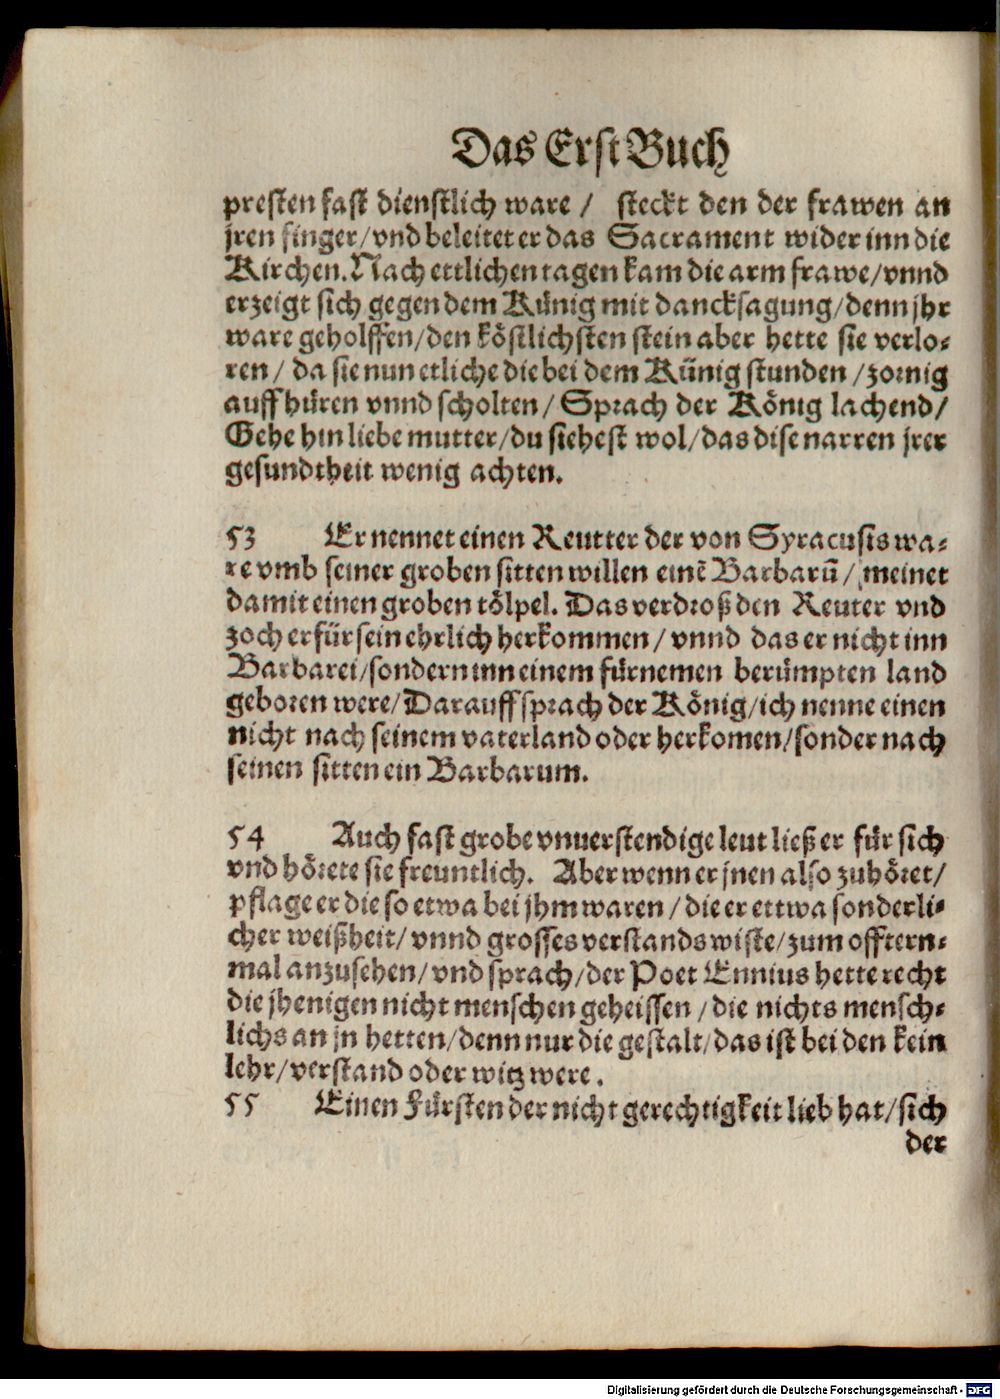 Das Erst Buch
presten fast dienstlich ware / steckt den der frawen an
jren finger/vnd beleitet er das Sacrament wider inn die
Kirchen. Nach ettlichen tagen kam die arm frawe/vnnd
erzeigt sich gegen dem Künig mit dancksagung/denn jhr
ware geholffen/den köstlichsten stein aber hette sie verlo-
ren/ da sie nun etliche die bei dem Künig stunden /zornig
auff hüren vnnd scholten/ Sprach der König lachend/
Gehe hin liebe mutter/du siehest wol/das dise narren jrer
gesundtheit wenig achten.
53 Er nennet einen Reutter der von Syracusis wa-
re vmb seiner groben sitten willen einē Barbarū/ meinet
damit einen groben tölpel. Das verdroß den Reuter vnd
zoch er für sein ehrlich herkommen/ vnnd das er nicht inn
Barbarei/sondern inn einem fürnemen berümpten land
geboren were/Darauff sprach der König/ich nenne einen
nicht nach seinem vaterland oder herkomen/sonder nach
seinen sitten ein Barbarum.
54 Auch fast grobe vnuerstendige leut ließ er für sich
vnd hörete sie freuntlich. Aber wenn er jnen also zuhöret/
pflage er die so etwa bei jhm waren / die er ettwa sonderli-
cher weißheit/ vnnd grosses verstands wiste/zum offtern-
mal anzusehen/ vnd sprach/der Poet Ennius hette recht
die jhenigen nicht menschen geheissen /die nichts mensch-
lichs an jn hetten/denn nur die gestalt/das ist bei den kein
lehr/verstand oder witz were.
55 Einen Fürsten der nicht gerechtigkeit lieb hat/sich
der
Digitalisierung gefördert durch die Deutsche Forschungsgemeinschaft - DFG